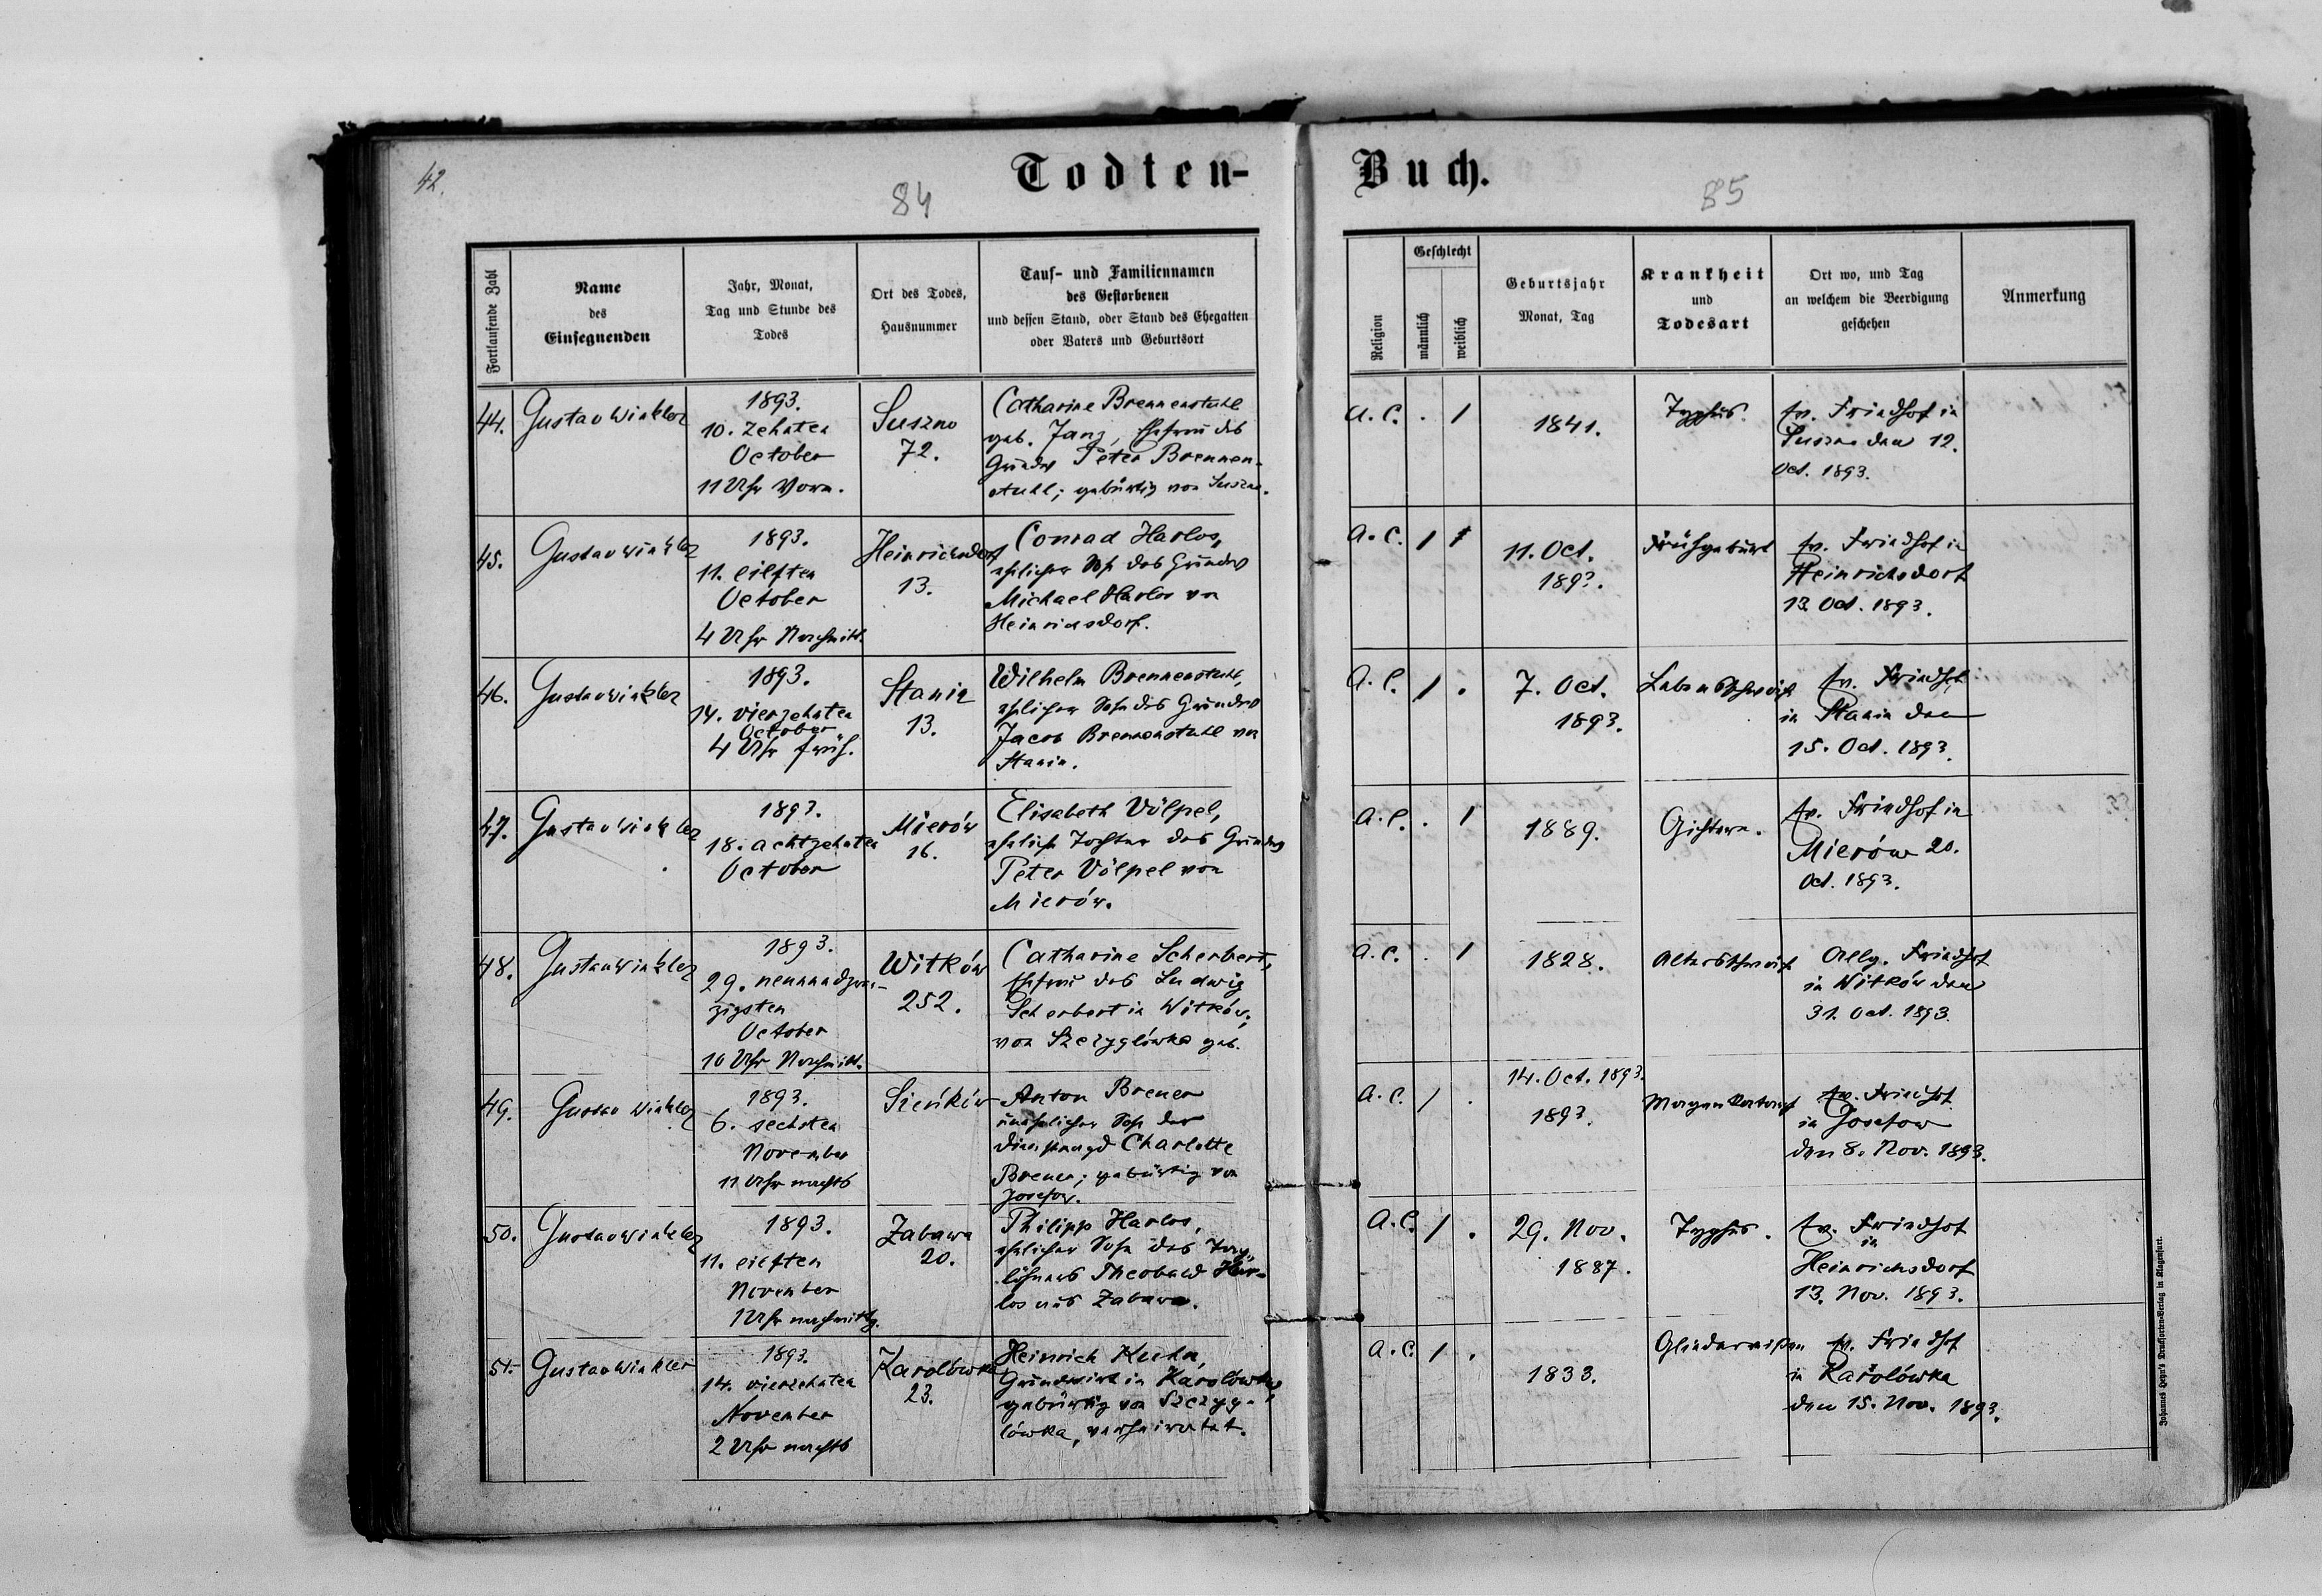 42.
84
Todten-
Buch.
85
Fortlaufende Zahl
Name
des
Einsegnenden
Jahr, Monat,
Tag und Stunde des
Todes
Ort des Todes,
Hausnummer
Tauf- und Familiennamen
des Gestorbenen
und dessen Stand, oder Stand des Ehegatten
oder Vaters und Geburtsort
Religion
Geschlecht
männlich
weiblich
Geburtsjahr
Monat, Tag
Krankheit
und
Todesart
Ort wo, und Tag
an welchem die Beerdigung
geschehen
Anmerkung
44.
Gustav Winkler
1893.
10. Zehnten
October
11 Uhr Vorm.
Suszno
72.
Catharine Brennenstuhl
geb. Janz, Ehefrau des
Grundw Peter Brennen-
stuhl; gebürtig von Suszno.
A. C.
.
/
1841.
Typhus.
Ev. Friedhof in
Suszno den 12.
Oct. 1893.
45.
Gustav Winkler
1893.
11. eilften
October
4 Uhr Nachmitt.
Heinrichsdorf
13.
Conrad Harlos,
ehelicher Sohn des Grundw
Michael Harlos von
Heinrichsdorf.
A. C.
/
11. Oct.
1893.
Frühgeburt
Ev. Friedhof in
Heinrichsdorf
13. Oct. 1893.
46.
Gustav Winkler
1893.
14. vierzehnten
October
4 Uhr früh.
Stanin
13.
Wilhelm Brennenstuhl,
ehelicher Sohn des Grundw
Jacob Brennenstuhl von
Stanin.
A. C.
/
.
7. Oct.
1893.
Lebensschwäche
Ev. Friedhof
in Stanin den
15. Oct. 1893.
47.
Gustav Winkler
1893.
18. achtzehnten
October
Mierów
16.
Elisabeth Völpel,
eheliche Tochter des Grundw
Peter Völpel von
Mierów.
A. C.
.
/
1889.
Gichtern.
Ev. Friedhof in
Mierów 20.
Oct. 1893.
48.
Gustav Winkler
1893.
29. neunundzwan-
zigsten
October
10 Uhr Nachmitt.
Witków
252.
Catharine Scherbert,
Ehefrau des Ludwig
Scherbert in Witków,
von Szczyglówka geb.
A. C.
.
/
1828.
Altersschwäche
Allg. Friedhof
in Witków den
31. Oct. 1893.
49.
Gustav Winkler
1893.
6. sechsten
November
11 Uhr nachts
Sieńków
Anton Brener
unehelicher Sohn der
Dienstmagd Charlotte
Brener; gebürtig von
Josefow.
A. C.
/
.
14. Oct. 1893.
1893.
Magenkatarrh
Ev. Friedhof
in Josefow
den 8. Nov. 1893.
50.
Gustav Winkler
1893.
11. eilften
November
1 Uhr nachmittg.
Zabawa
20.
Philipp Harlos,
ehelicher Sohn des Tag-
löhners Theobald Har-
los aus Zabawa.
A. C.
/
.
29. Nov.
1887.
Typhus.
Ev. Friedhof
in
Heinrichsdorf
13. Nov. 1893.
51.
Gustav Winkler
1893.
14. vierzehnten
November
2 Uhr nachts
Karolówka
23.
Heinrich Kuhn,
Grundwirt in Karolówka,
gebürtig von Szczyg-
lówka, verheiratet.
A. C.
/
.
1833.
Gliederreißen
Ev. Friedhof
in Karolówka
den 15. Nov. 1893.
Johannes Heyn's Drucksorten-Verlag in Klagenfurt.